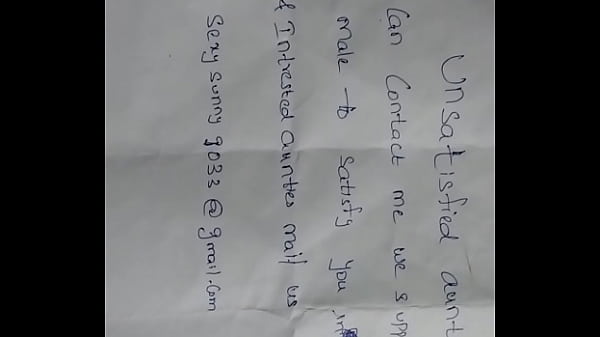 Unsatisfied aunt
Can Contact me we supp
male to satisfy you in
& Intrested aunties mail us
Sexy sunny 9033 @ gmail.com